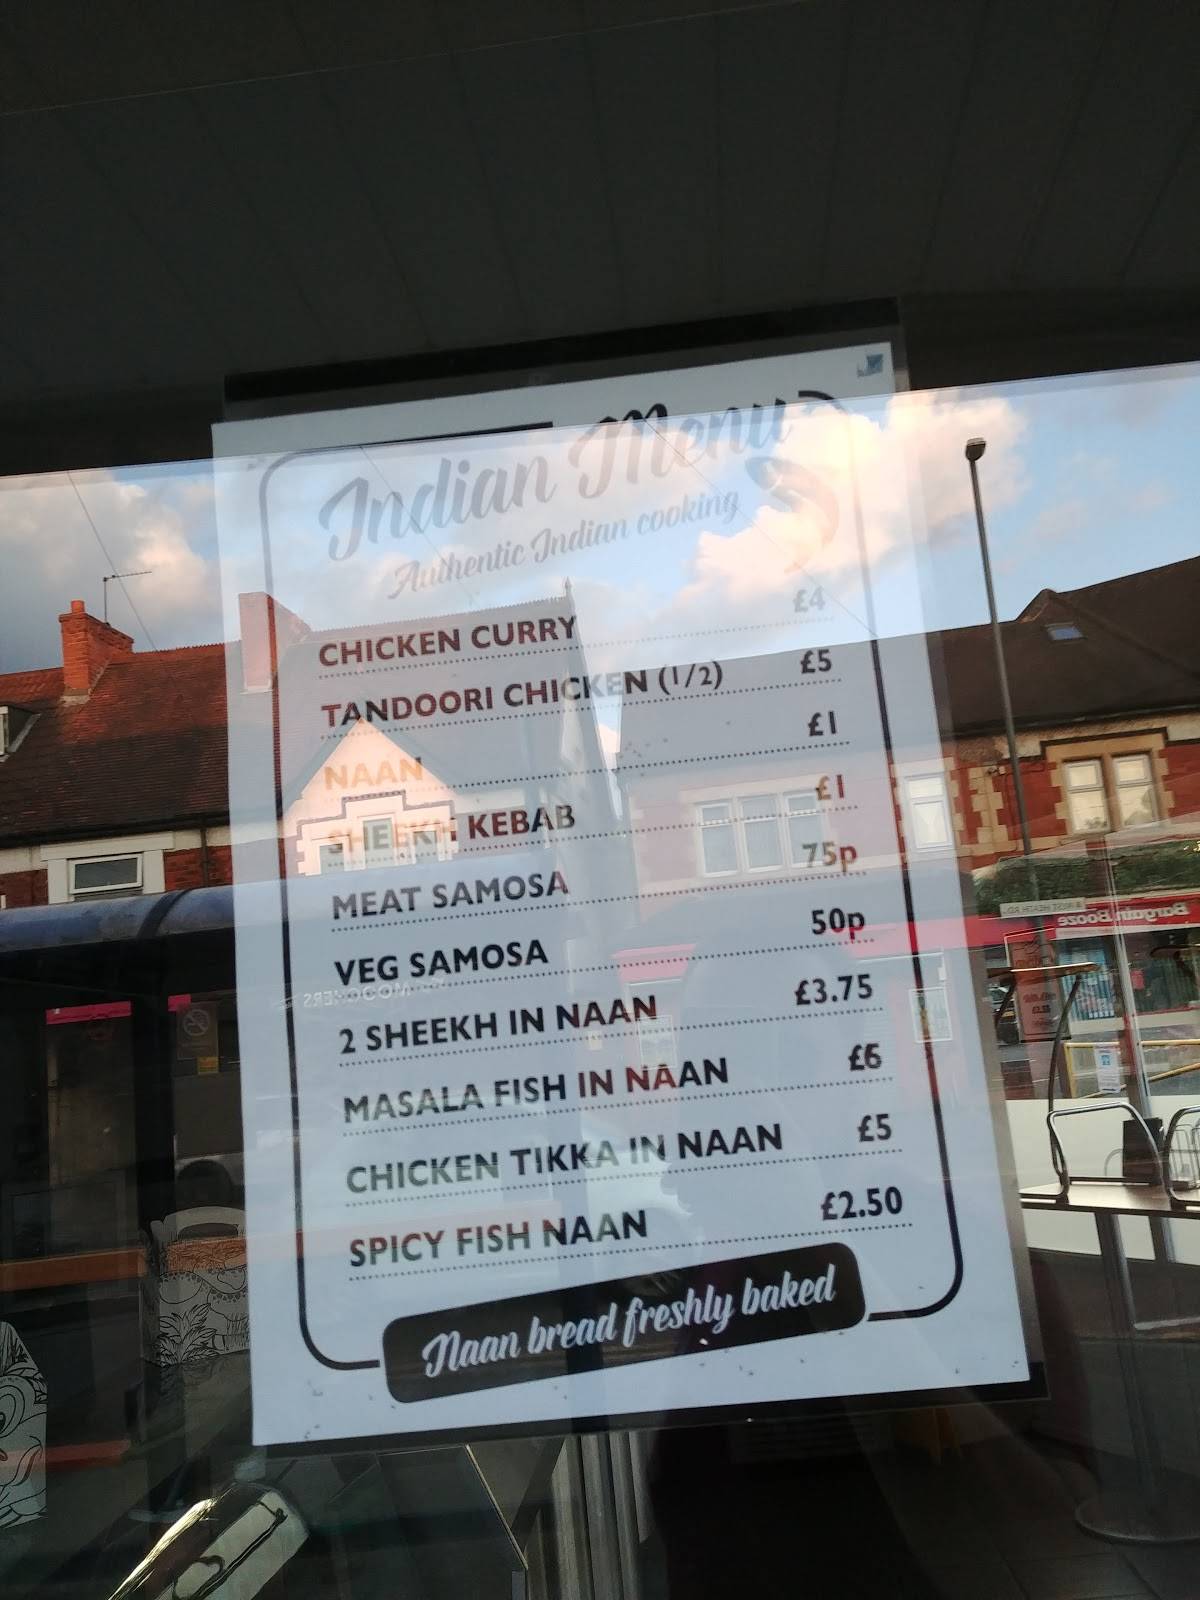 Indian Menu
Authentic Indian cooking
CHICKEN CURRY £4
TANDOORI CHICKEN (1/2) £5
NAAN £1
SHEEKH KEBAB £1
MEAT SAMOSA 75p
VEG SAMOSA 50p
2 SHEEKH IN NAAN £3.75
MASALA FISH IN NAAN £6
CHICKEN TIKKA IN NAAN £5
SPICY FISH NAAN £2.50
Naan bread freshly baked
Bargain Booze